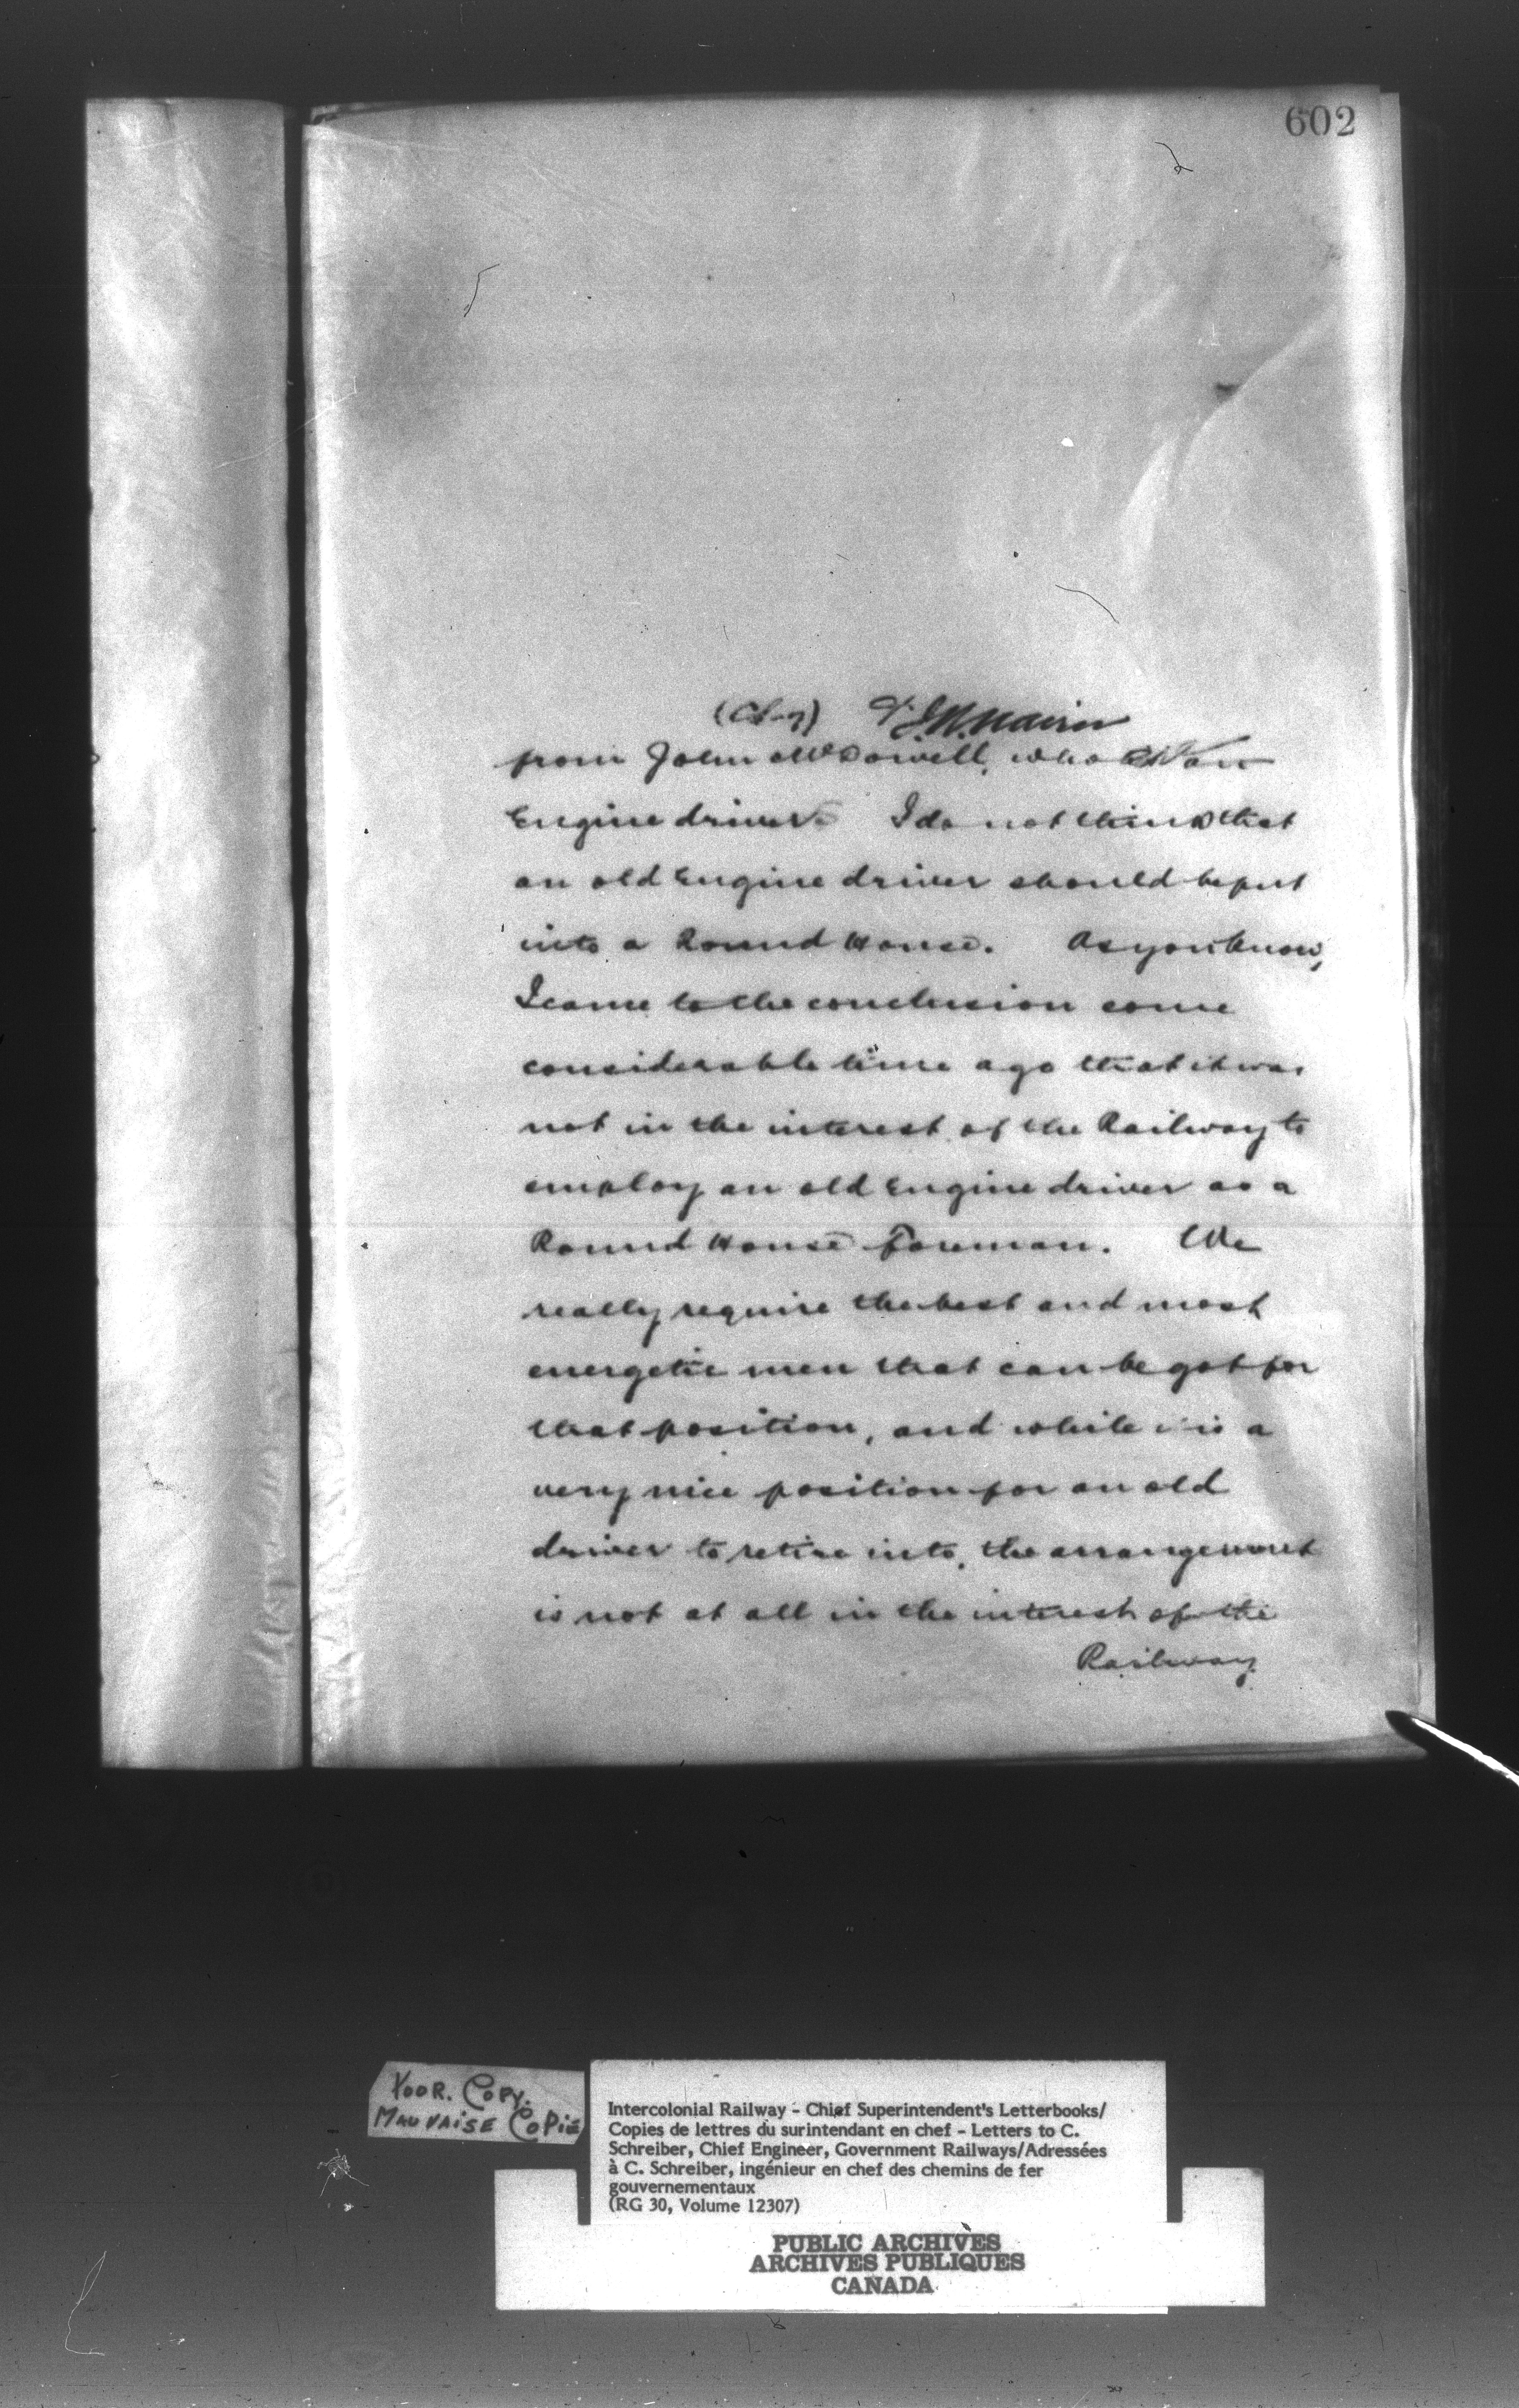 602
from John McDowell, who is an
Engine driver. I do not think that
an old Engine driver should be put
into a Round House. As you know,
I came to the conclusion some
considerable time ago that it was
not in the interest of the Railway to
employ an old Engine driver as a
Round House Foreman. We
really require the best and most
energetic men that can be got for
that position, and while is a
very nice position for an old
driver to retire into, the arrangement
is not at all in the interest of the
Railway
POOR. COPY.
MAUVAISE COPIE
Intercolonial Railway - Chief Superintendent's Letterbooks/
Copies de lettres du surintendant en chef - Letters to C.
Schreiber, Chief Engineer, Government Railways/Adressées
à C. Schreiber, ingénieur en chef des chemins de fer
gouvernementaux
(RG 30, Volume 12307)
PUBLIC ARCHIVES
ARCHIVES PUBLIQUES
CANADA